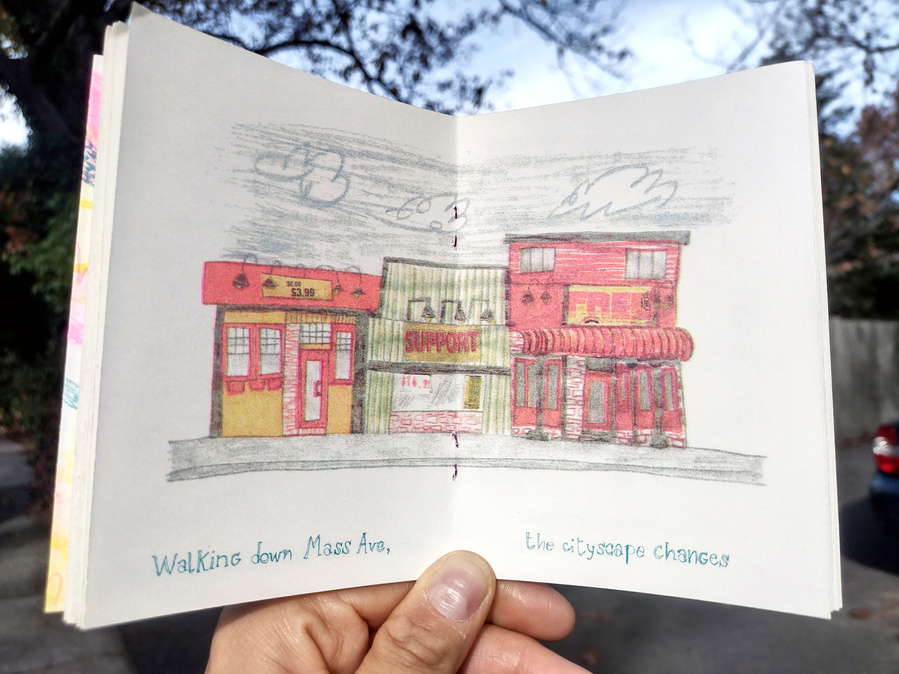 $6.00
$3.99
SUPPORT
Walking down Mass Ave,
the cityscape changes